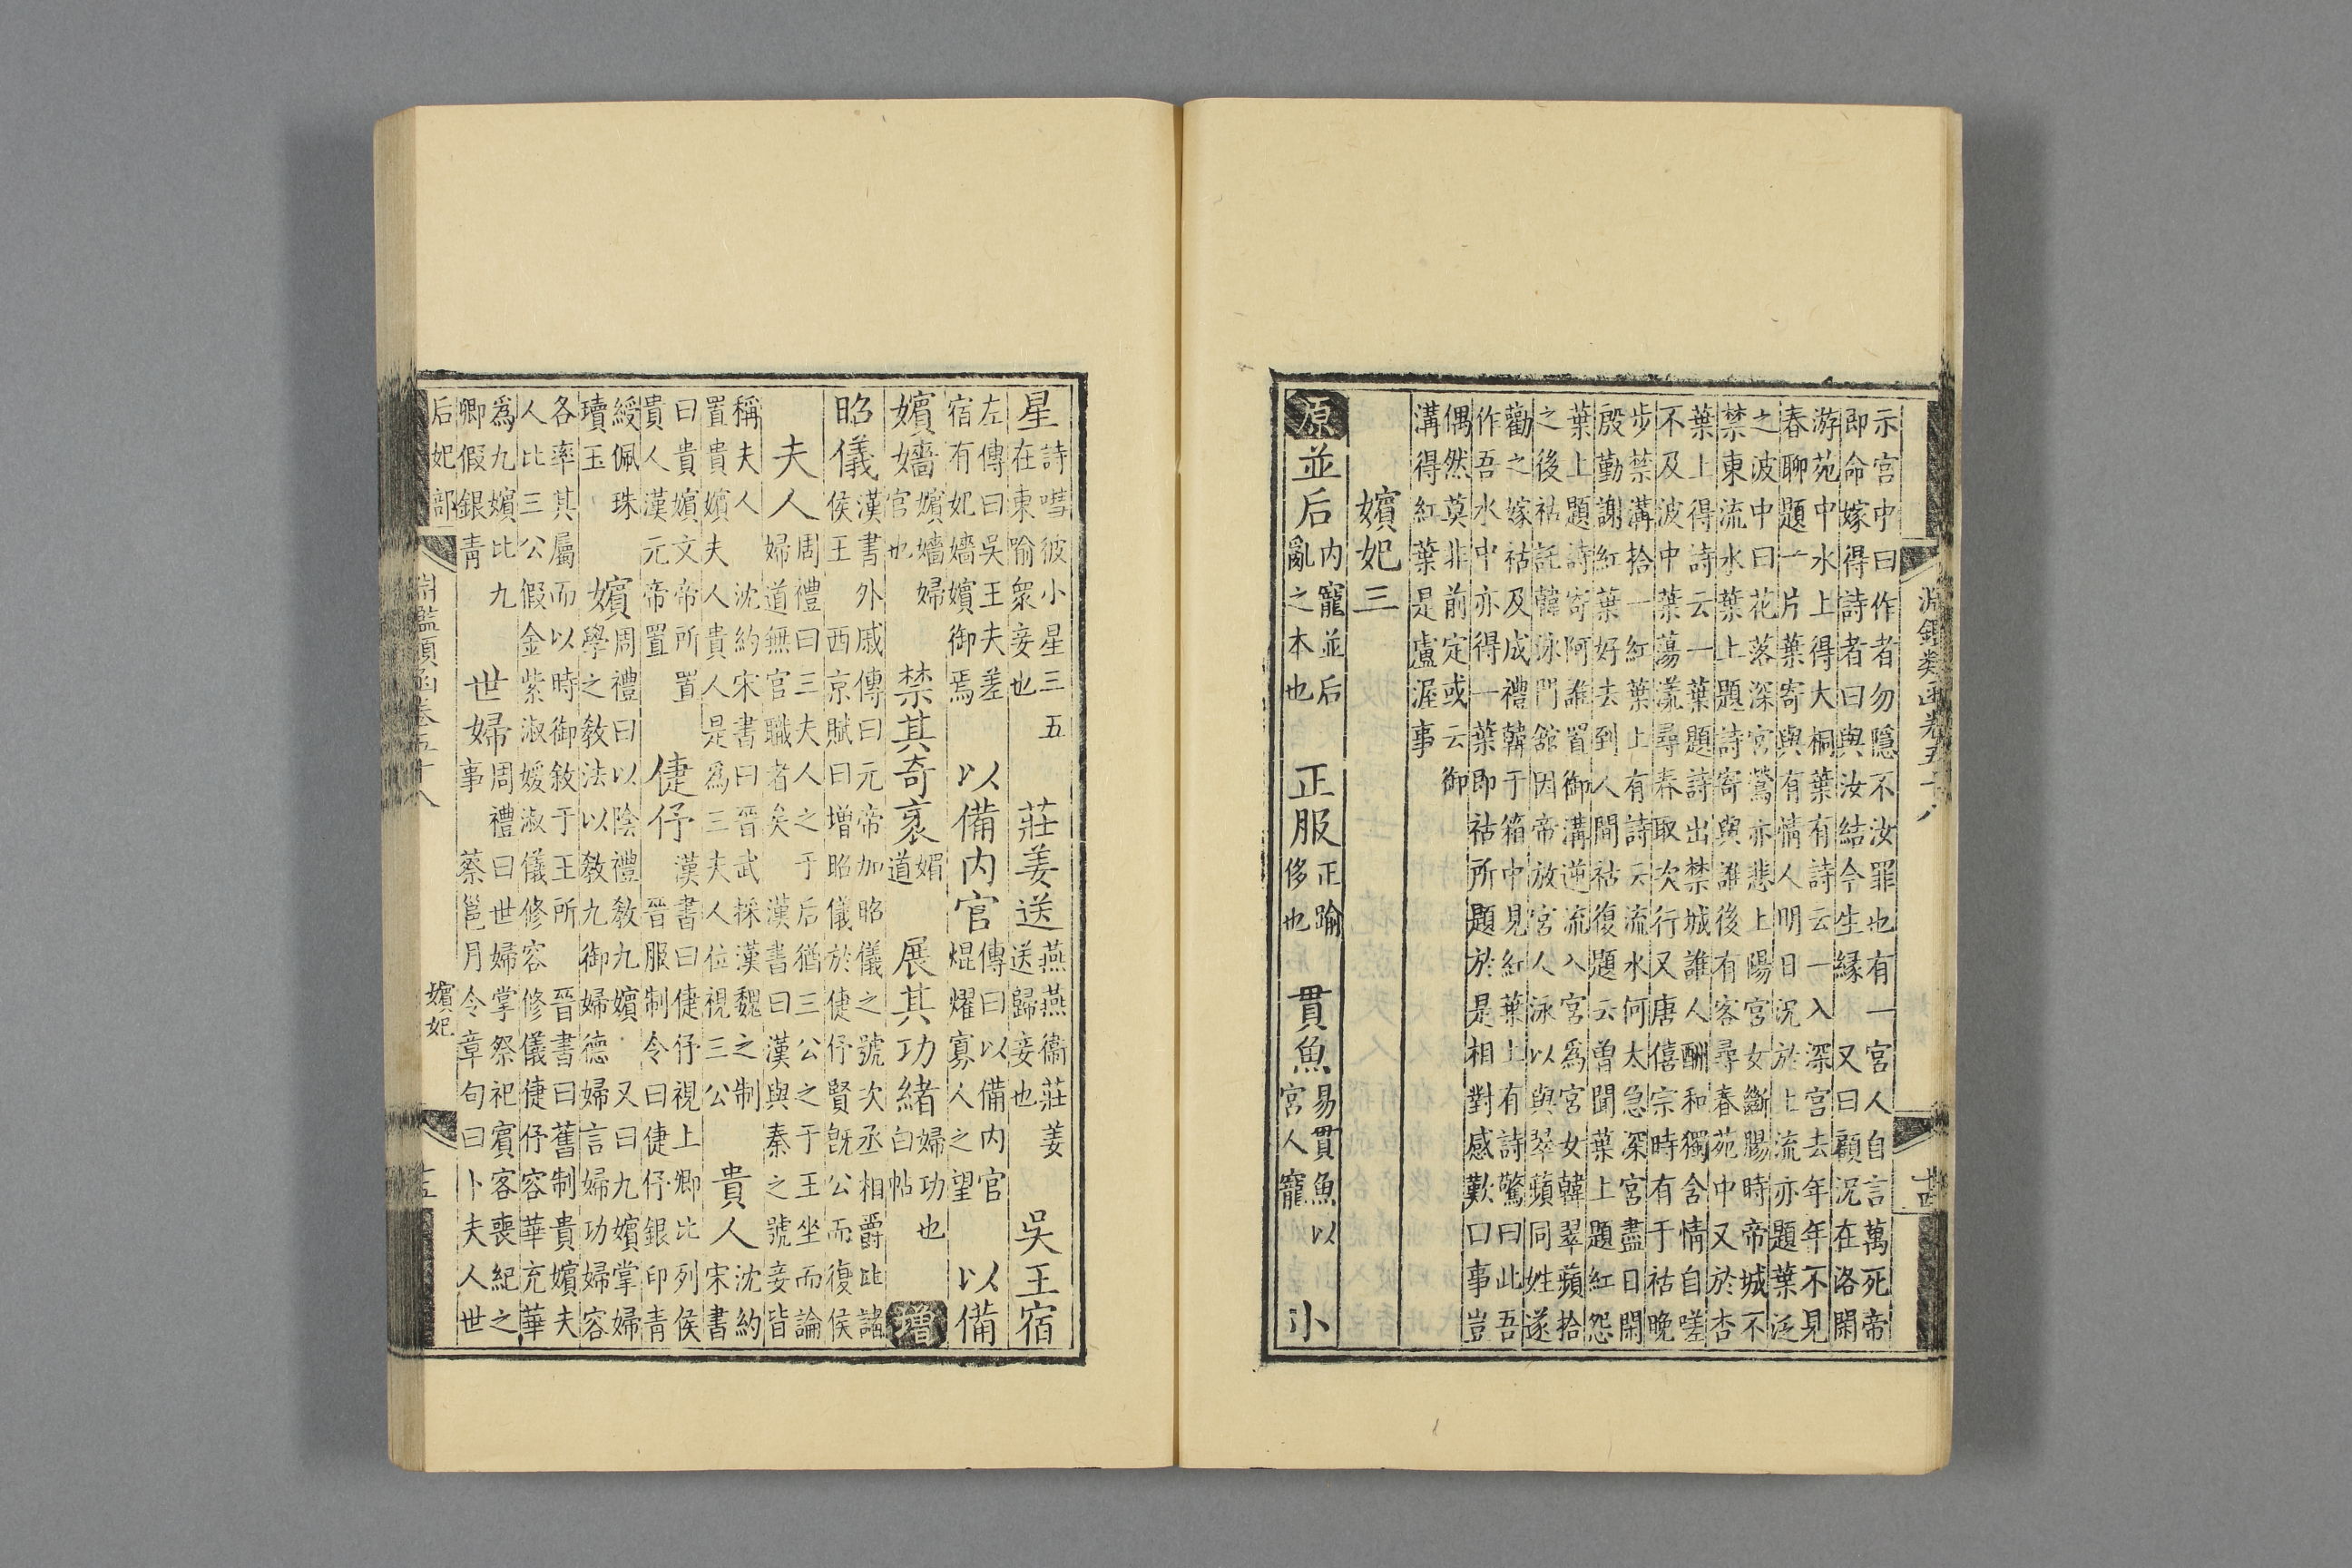 淵鑑類函卷五十八 十四
示宮中曰作者勿隱不汝罪也有一宮人自言萬死帝
即命嫁得詩者曰與汝結今生緣 又曰顧況在洛閑
游苑中水上得大桐葉有詩云一入深宮去年年不見
春聊題一片葉寄與有情人明日況於上流亦題葉泛
之波中曰花落深宮鶯亦悲上陽宮女斷腸時帝城不
禁東流水葉上題詩寄與誰後有客尋春苑中又於杏
葉上得詩云一葉題詩出禁城誰人酬和獨含情自嗟
不及波中葉蕩漾尋春取次行又唐僖宗時有于祜晚
步禁溝拾一紅葉上有詩云流水何太急深宮盡日閑
殷勤謝紅葉好去到人間祜復題云曽聞葉上題紅怨
葉上題詩寄阿誰置御溝逆流入宮為宮女韓翠蘋拾
之後祜託韓泳門舘因帝放宮人泳以與翠蘋同姓遂
勸之嫁祜及成禮韓于箱中見紅葉上有詩驚曰此吾
作吾水中亦得一葉即祜所題於是相對感歎曰事豈
偶然莫非前定或云御
溝得紅葉是盧渥事
嬪妃三
原 並后 內寵並后亂之本也 正服 正踰侈也 貫魚 易貫魚以宮人寵 小
星 詩嘒彼小星三五在東喻衆妾也 莊姜送 燕燕衞莊姜送歸妾也 吳王宿
左傳曰吳王夫差宿有妃嬙嬪御焉 以備內官 傳曰以備內官焜燿寡人之望 以備
嬪嬙 嬪嬙婦官也 禁其奇衺 媚道 展其功緒 婦功也白帖 增
昭儀 漢書外戚傳曰元帝加昭儀之號次丞相爵比諸侯王 西京賦曰增昭儀於倢伃賢旣公而復侯
夫人 周禮曰三夫人之于后猶三公之于王坐而論婦道無官職者矣 漢書曰漢與秦之號妾皆
稱夫人 沈約宋書曰晉武採漢魏之制置貴嬪夫人貴人是為三夫人位視三公 貴人 沈約宋書
曰貴嬪文帝所置貴人漢元帝置 倢伃 漢書曰倢伃視上卿比列侯 晉服制令曰倢伃銀印青
綬佩珠瓚玉 嬪 周禮曰以陰禮敎九嬪 又曰九嬪掌婦學之敎法以敎九御婦德婦言婦功婦容
各率其屬而以時御敘于王所 晉書曰舊制貴嬪夫人比三公假金紫淑媛淑儀修容修儀倢伃容華充華
為九嬪比九卿假銀青 世婦 周禮曰世婦掌祭祀賓客喪紀之事 蔡邕月令章句曰卜夫人世
后妃部 嬪妃
淵鑑類函卷五十八 十五